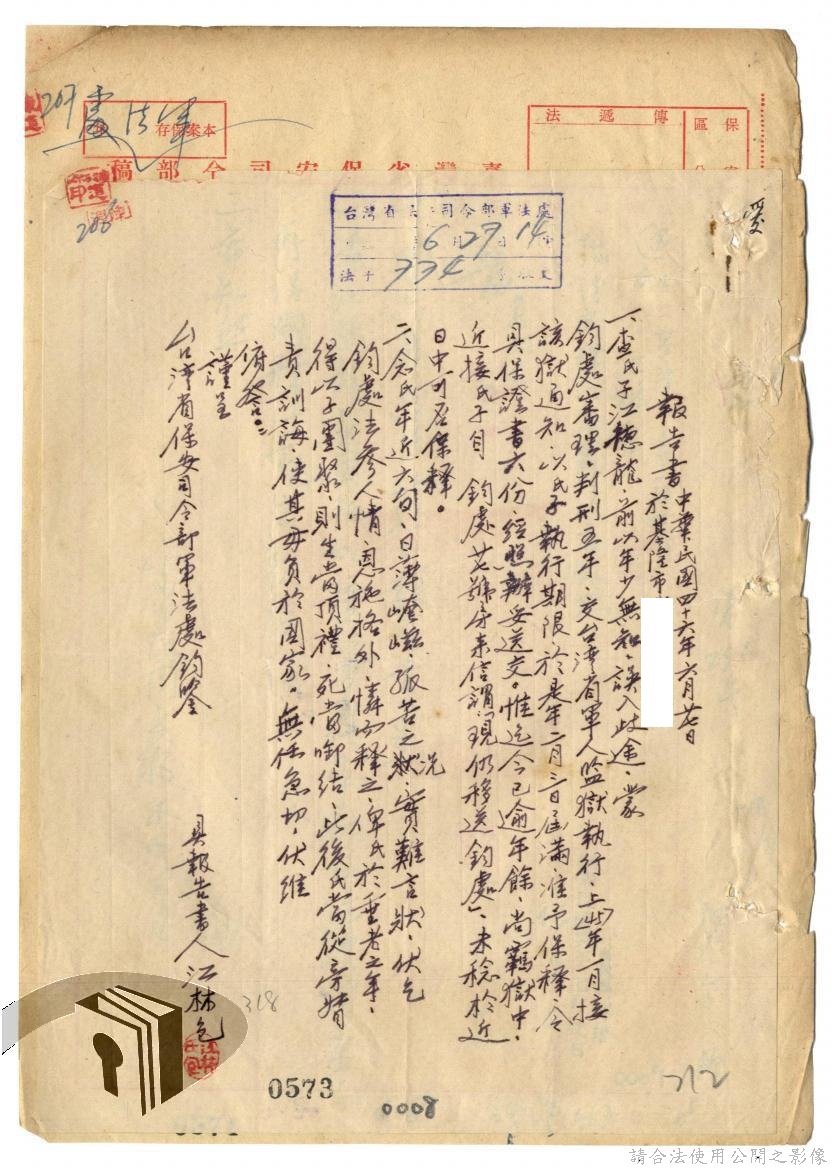 保區
傳遞法
臺灣省保安司令部稿
本案保存
207
206
台灣省保安司令部軍法處
6月27日14時
法字 334 號收文
報告書 中華民國四十六年六月廿七日
於基隆市
一、查氏子江德龍、前以年少無知、誤入歧途、蒙
鈞處審理、判刑五年、交台湾省軍人監獄執行、上(45)年一月接
該獄通知、以氏子執行期限、於是年二月三日屆滿、准予保釋、令
具保證書六份、經照辦妥送交。惟迄今已逾年餘、尚羈獄中、
近接氏子自 鈞處廿七號房来信謂「現仍移送鈞處」、未稔於近
日中可否保釋。
二、念氏年近六旬、日薄崦嵫、孤苦之狀況、實難言狀、伏乞
鈞處法參人情、恩施格外、憐而釋之、俾氏於垂老之年、
得以子團聚、則生當頂禮、死當啣結、此後氏當從旁督
責訓誨、使其毋負於國家。無任急切、伏維
俯答。
謹呈
台湾省保安司令部軍法處鈞鑒
具報告書人 江林包
318
312
0573
0008
請合法使用公開之影像